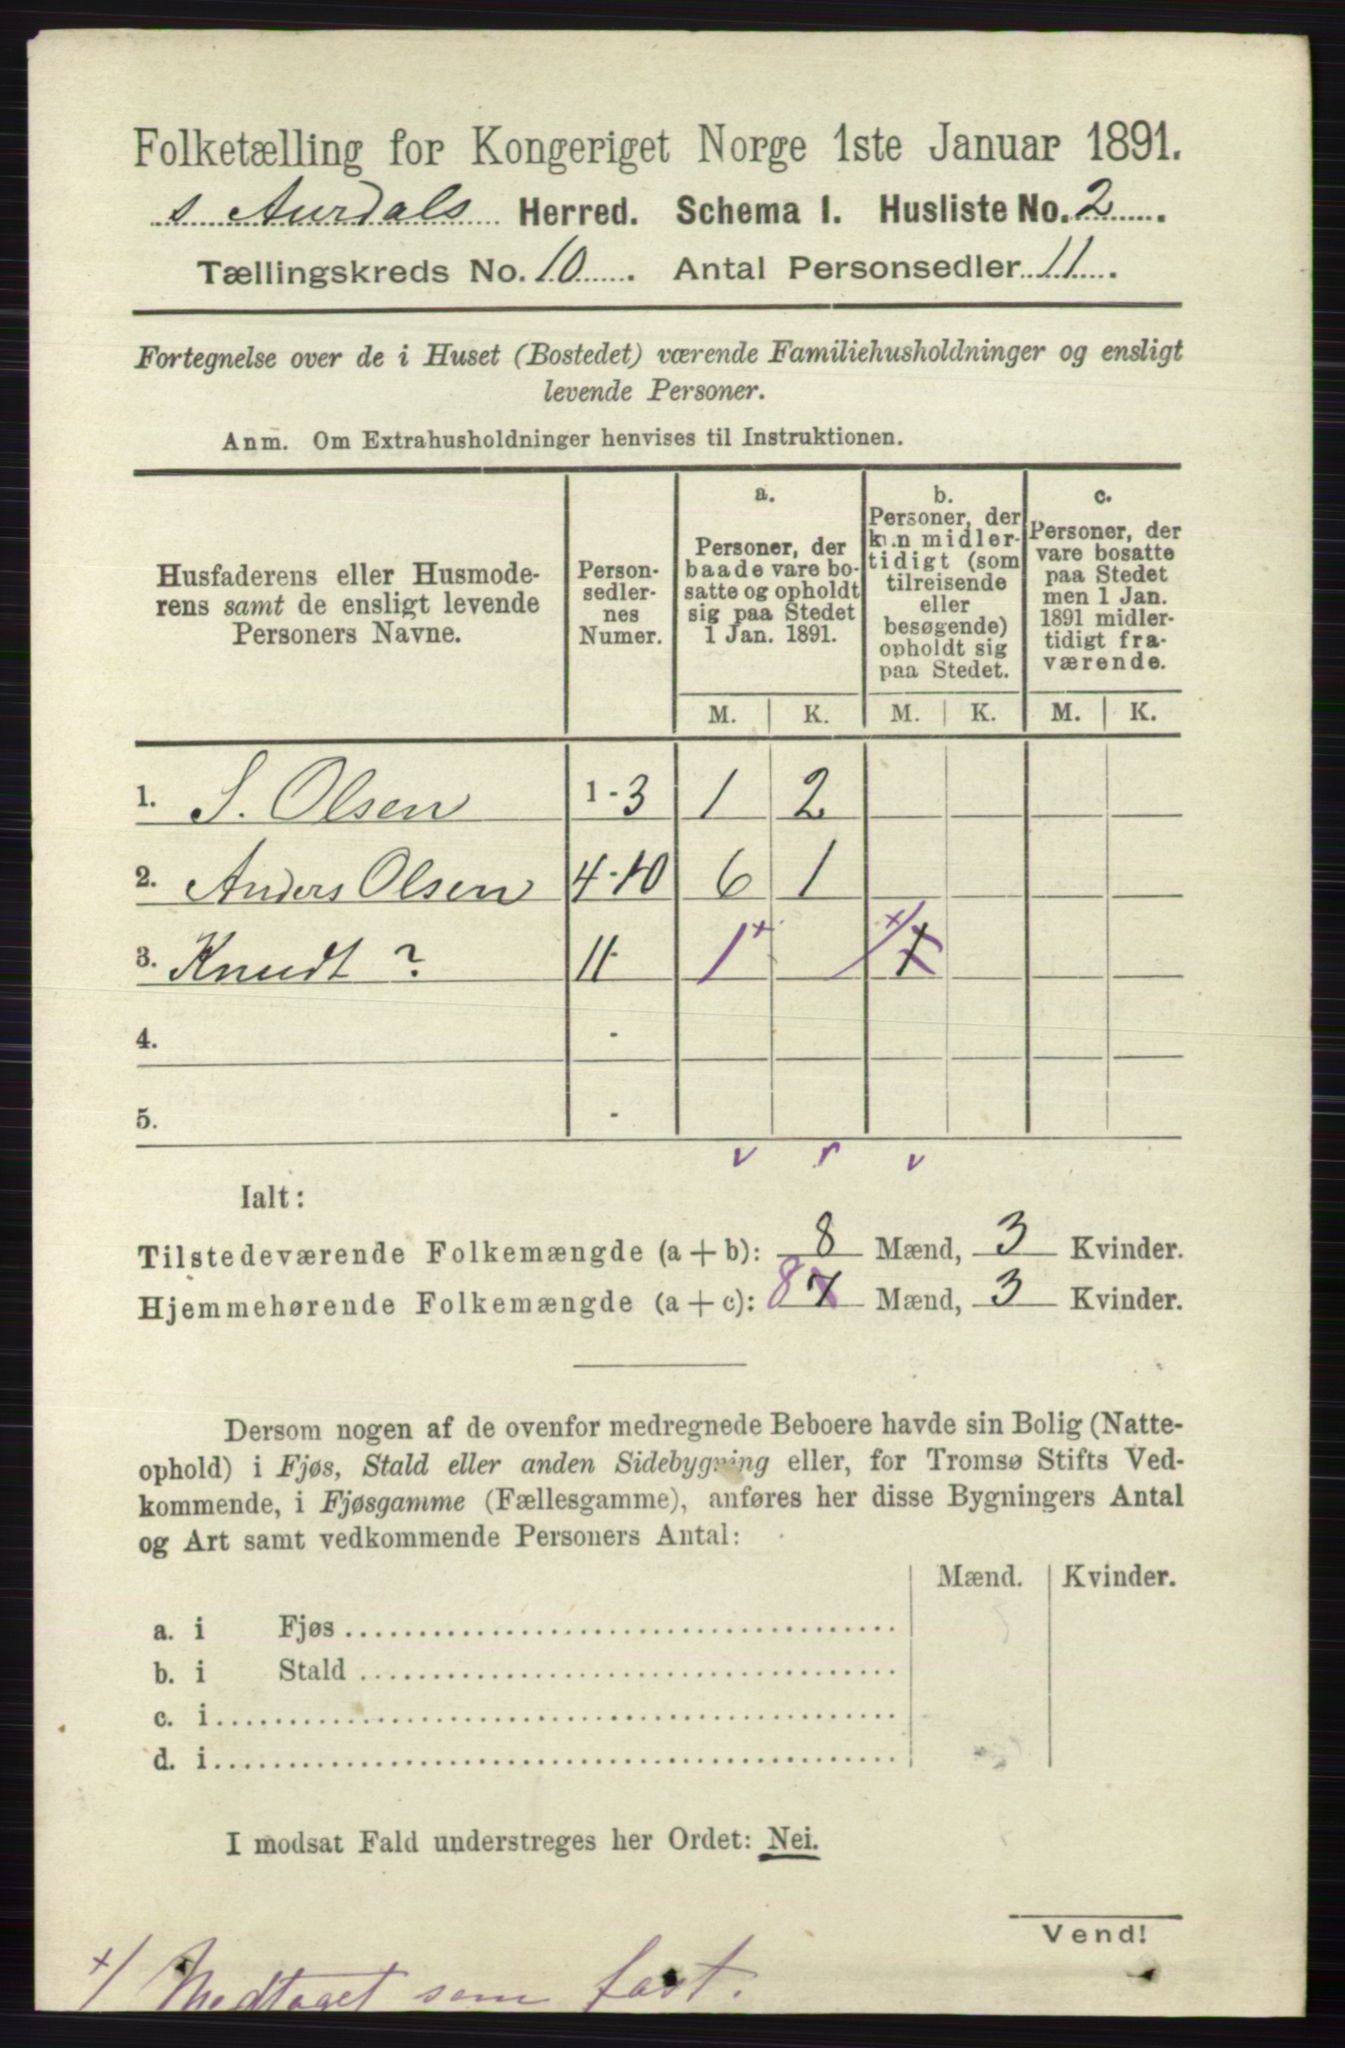 Folketælling for Kongeriget Norge 1ste Januar 1891.
s Aurdals Herred. Schema I. Husliste No. 2.
Tællingskreds No. 10. Antal Personsedler 11.
Fortegnelse over de i Huset (Bostedet) værende Familiehusholdninger og ensligt
levende Personer.
Anm. Om Extrahusholdninger henvises til Instruktionen.
Husfaderens eller Husmode-
rens samt de ensligt levende
Personers Navne.
Person-
sedler-
nes
Numer.
a.
Personer, der
baade vare bo-
satte og opholdt
sig paa Stedet
1 Jan. 1891.
b.
Personer, der
kun midler-
tidigt (som
tilreisende
eller
besøgende)
opholdt sig
paa Stedet.
c.
Personer, der
vare bosatte
paa Stedet
men 1 Jan.
1891 midler-
tidigt fra-
værende.
M. K. M. K. M. K.
1. S. Olsen 1-3 1 2
2. Anders Olsen 4-10 6 1
3. Knudt ? 11- 1 x x/ 1
4. -
5. -
v r v
Ialt:
Tilstedeværende Folkemængde (a + b): 8 Mænd, 3 Kvinder.
Hjemmehørende Folkemængde (a + c): 8 7 Mænd, 3 Kvinder.
Dersom nogen af de ovenfor medregnede Beboere havde sin Bolig (Natte-
ophold) i Fjøs, Stald eller anden Sidebygning eller, for Tromsø Stifts Ved-
kommende, i Fjøsgamme (Fællesgamme), anføres her disse Bygningers Antal
og Art samt vedkommende Personers Antal:
Mænd. Kvinder.
a. i Fjøs
b. i Stald
c. i
d. i
I modsat Fald understreges her Ordet: Nei.
Vend!
x/ Medtaget som fast.